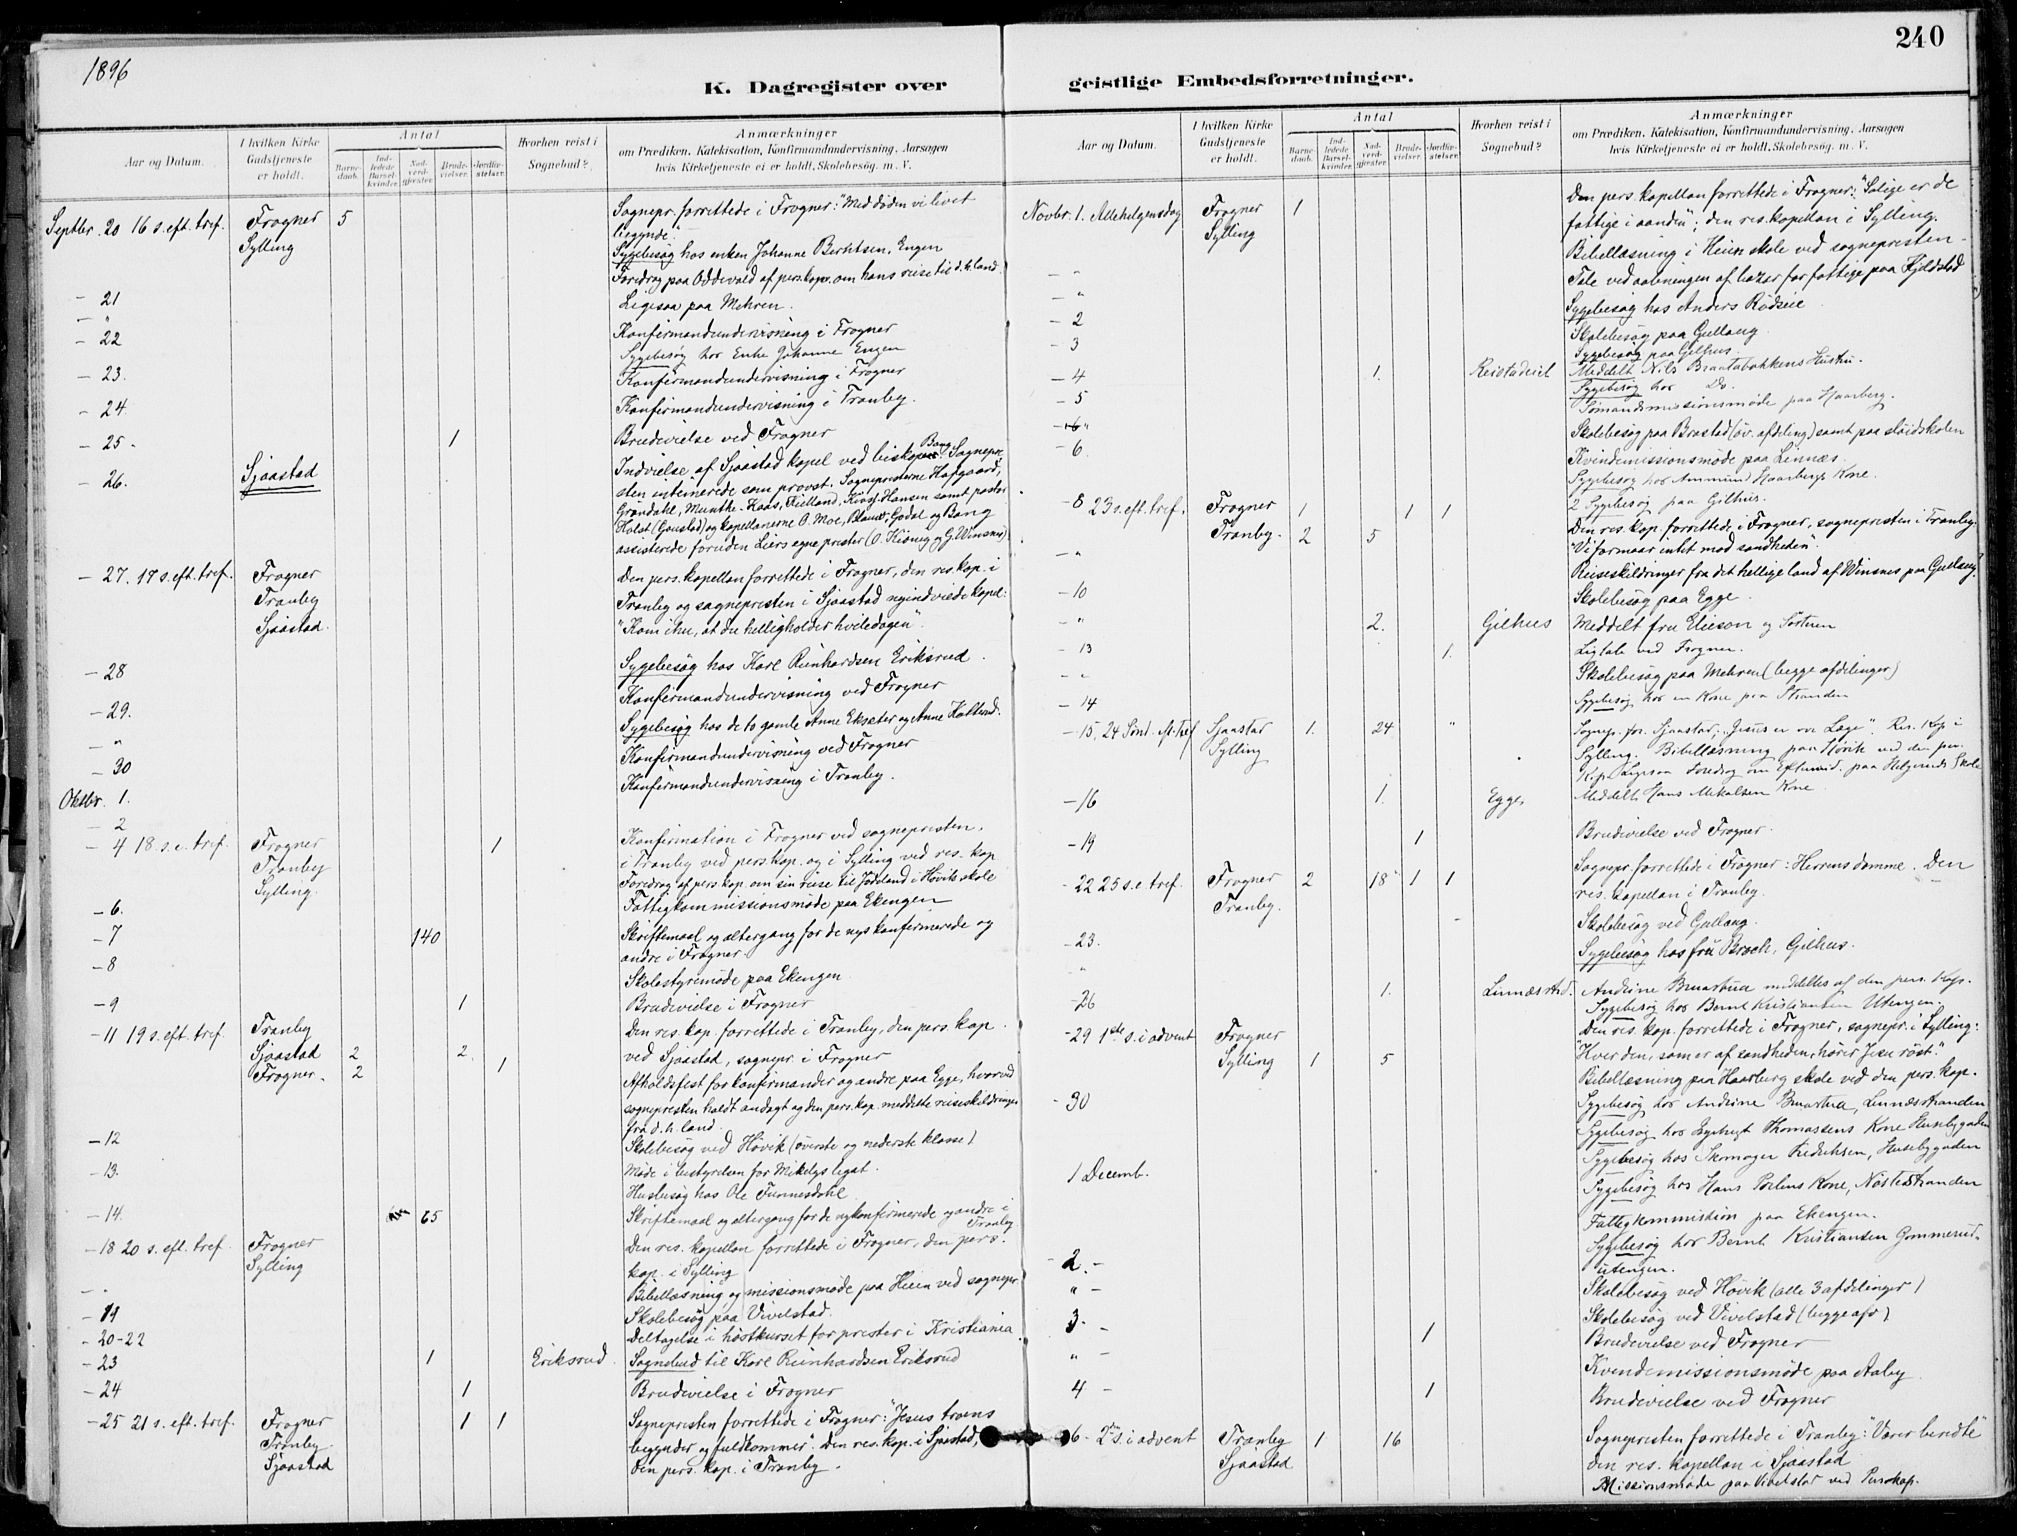 1896
240
K. Dagregister over
geistlige Embedsforretninger.
Aar og Datum.
I hvilken Kirke
Gudstjeneste
er holdt.
Antal
Barne-
daab.
Ind-
ledede
Barsel-
kvinder.
Nad-
verd-
gjester.
Brude-
vielser.
Jordfæ-
stelser.
Hvorhen reist i
Sognebud?
Anmærkninger
om Prædiken, Katekisation, Konfirmandundervisning, Aarsagen
hvis Kirketjeneste ei er holdt, Skolebesøg, m. V.
Septbr. 20 16 s. eft. tref. Frogner 5 Sognepr. forrettede i Frogner: "Med døden vi livet
Sylling begynde".
Sygebesøg hos enken Johanne Berntsen, Engen
Foredrag paa Oddevold af pers. kap. om hans reise til d. h. land.
- 21 Ligesaa paa Mehren.
- "
- 22 Konfirmandundervisning i Frogner
Sygebesøg hos Enke Johanne Engen
- 23. Konfirmandundervisning i Frogner
- 24. Konfirmandundervisning i Tranby.
- 25. 1 Brudevielse ved Frogner
- 26. Sjaastad Indvielse af Sjaastad kapel ved biskop Bang. Sognepr-
sten intimerede som provst. Sognepresterne Hafgaard,
Grøndahl, Munthe-Kaas, Hansen samt pastor
Holst (Gaustad) og kapellanerne O. Moe, Godal og Bang
assisterede foruden Liers egne prester (O. og G. Winsnes)
- 27. 17 s. eft. tref. Frogner Den pers. kapellan forrettede i Frogner, den res. kap. i
Tranby Tranby og sognepresten i Sjaastad nyindviede kapel:
Sjaastad. "Kom ihu, at du helligholder hviledagen".
- 28 Sygebesøg hos Karl Reinhardsen Eriksrud.
Konfirmandundervisning ved Frogner
- 29. Sygebesøg hos de to gamle Anne Eksæter og Anne
- " Konfirmandundervisning ved Frogner
- 30 Konfirmandundervisning i Tranby.
Oktbr. 1.
- 2
- 4 18. s. e. tref. Frogner 1 Konfirmation i Frogner ved sognepresten,
Tranby i Tranby ved pers. kap. og i Sylling ved res. kap.
Sylling. Foredrag af pers. kap. om sin reise til Jødeland i Høviks skole
- 6. Fattigkommissionsmøde paa Ekengen
- 7 140 Skriftemaal og altergang for de nys konfirmerede og
andre i Frogner.
- 8 Skolestyremøde paa Ekengen.
- 9 1 Brudevielse i Frogner
- 11 19 s. eft. tref. Tranby Den res. kap. forrettede i Tranby, den pers. kap.
Sjaastad 2 2. ved Sjaastad, sognepr. i Frogner
Frogner. 2 1 Afholdsfest for konfirmander og andre paa Egge, hvorved
sognepresten holdt andagt og den pers. kap. meddelte reiseskildringer
fra d. h. land.
- 12 Skolebesøg ved Høvik (øverste og nederste klasse)
- 13. Møde i bestyrelsen for Mikelys legat.
Husbesøg hos Ole Funnesdahl.
- 14. 65 Skriftemaal og altergang for de nykonfirmerede og andre i
Tranby.
- 18 20 s. eft. tref. Frogner Den res. kapellan forrettede i Frogner, den pers.
Sylling kap. i Sylling
- " Bibellæsning og missionsmøde paa Heien ved sognepr.
- 19 Skolebesøg paa Vivelstad.
- 20-22 Deltagelse i høstkurset for prester i Kristiania.
- 23 1 Eriksrud. Sognebud til Karl Reinhardsen Eriksrud
- 24 1 Brudevielse i Frogner
- 25 21 s. eft. tref. Frogner 1 1 Sognepresten forrettede i Frogner: "Jesus troens
Tranby begynder og fuldkommer". Den res. kap. i Sjaastad,
Sjaastad den pers. kap. i Tranby.
Aar og Datum.
I hvilken Kirke
Gudstjeneste
er holdt.
Antal
Barne-
daab.
Ind-
ledede
Barsel-
kvinder.
Nad-
verd-
gjester.
Brude-
vielser.
Jordfæ-
stelser.
Hvorhen reist i
Sognebud?
Anmærkninger
om Prædiken, Katekisation, Konfirmandundervisning, Aarsagen
hvis Kirketjeneste ei er holdt, Skolebesøg, m. V.
Novbr. 1. Allehelgensdag Frogner 1 Den pers. kapellan forrettede i Frogner: "Salige er de
Sylling fattige i aanden"; den res. kapellan i Sylling.
Bibellæsning i Heien skole ved sognepresten-
- " Tale ved aabningen af bazar for fattige paa Kjeldstad
- " Sygebesøg hos Anders Rødseie
- 2 Skolebesøg paa Gullaug.
- 3 Sygebesøg paa Gilhus.
- 4 1. Reistadeiet Meddelt Nils Braatabakkens Hustru.
- 5 Sygebesøg hos Do.
Sømandsmissionsmøde paa Haarberg.
- 6 " Skolebesøg paa Brastad (øv. afdeling) samt paa sløidskolen
- 6. Kvindemissionsmøde paa Linnæs.
Sygebesøg hos Ammund Haarbergs Kone.
2 Sygebesøg paa Gilhus.
- 8 23 s. eft. tref. Frogner 1 1 1 Den res. kap. forrettede i Frogner, sognepresten i Tranby.
Tranby. 2 5 "Vi formaar intet mod sandheden".
- " Reiseskildringer fra det hellige land af Winsnes paa Gullaug.
- 10 Skolebesøg paa Egge.
- " 2. Gilhus Meddelt fru Elieson og Søsteren
- 13 1. Ligtale ved Frogner.
- " Skolebesøg paa Mehren (begge afdelinger)
- 14 Sygebesøg hos en Kone paa Stranden
- 15, 24 Sønd. eft. tref Sjaastad 1. 24. " Sognep. for. Sjaastad: "Jesus er vor Læge". Res. Kap i
Sylling Sylling. Bibellæsning paa Høvik ved den per.
Kap. Ligesaa Foredrag om Eftermid. paa Helgerud Skole
- 16 1. Egge, Meddelt Hans Mikalsen Kone.
- 19 1 Brudevielse ved Frogner.
- 22 25 s. e. tref. Frogner 2 18 1 1 Sognepr. forrettede i Frogner: Herrens domme. Den
Tranby. res. kapellan i Tranby.
Skolebesøg ved Gullaug.
- 23. Sygebesøg hos fru Broch, Gilhus.
"
- 26 1. Linnæsstrd. Andrine Bruastua meddeltes af den pers. Kap.
Sygebesøg hos Bernt Kristiansen Utengen.
- 29 1ste s. i advent Frogner Den res. kap. forrettede i Frogner, sognepr. i Sylling:
Sylling 1 5 "Hver den, som er af sandheden, hører Jesu røst."
Bibellæsning paa Haarberg skole ved den pers. kap.
- 30 Sygebesøg hos Andrine Bruastua, Linnæsstranden
Sygebesøg hos Thomassens Kone Husebygaden
Sygebesøg hos Skomager Fredriksen, Husebygaden
1 Decemb. Sygebesøg hos Hans Kone, Nøstestranden
Fattigkommission paa Ekengen.
Sygebesøg hos Bernt Kristiansen Gommerud-
- 2. - utengen.
" - Skolebesøg ved Høvik (alle 3 afdelinger)
3. - Skolebesøg ved Vivelstad (begge afd)
1 Brudevielse ved Frogner
" - Kvindemissionsmøde paa Aaby
4 - 1 Brudevielse ved Frogner
6 - 2den s. i advent Tranby 1 16 Sognepresten forrettede i Tranby: "Værer beredte"
Sjaastad den res. kapellan i Sjaastad
Missionsmøde paa Vivelstad ved Perskap.